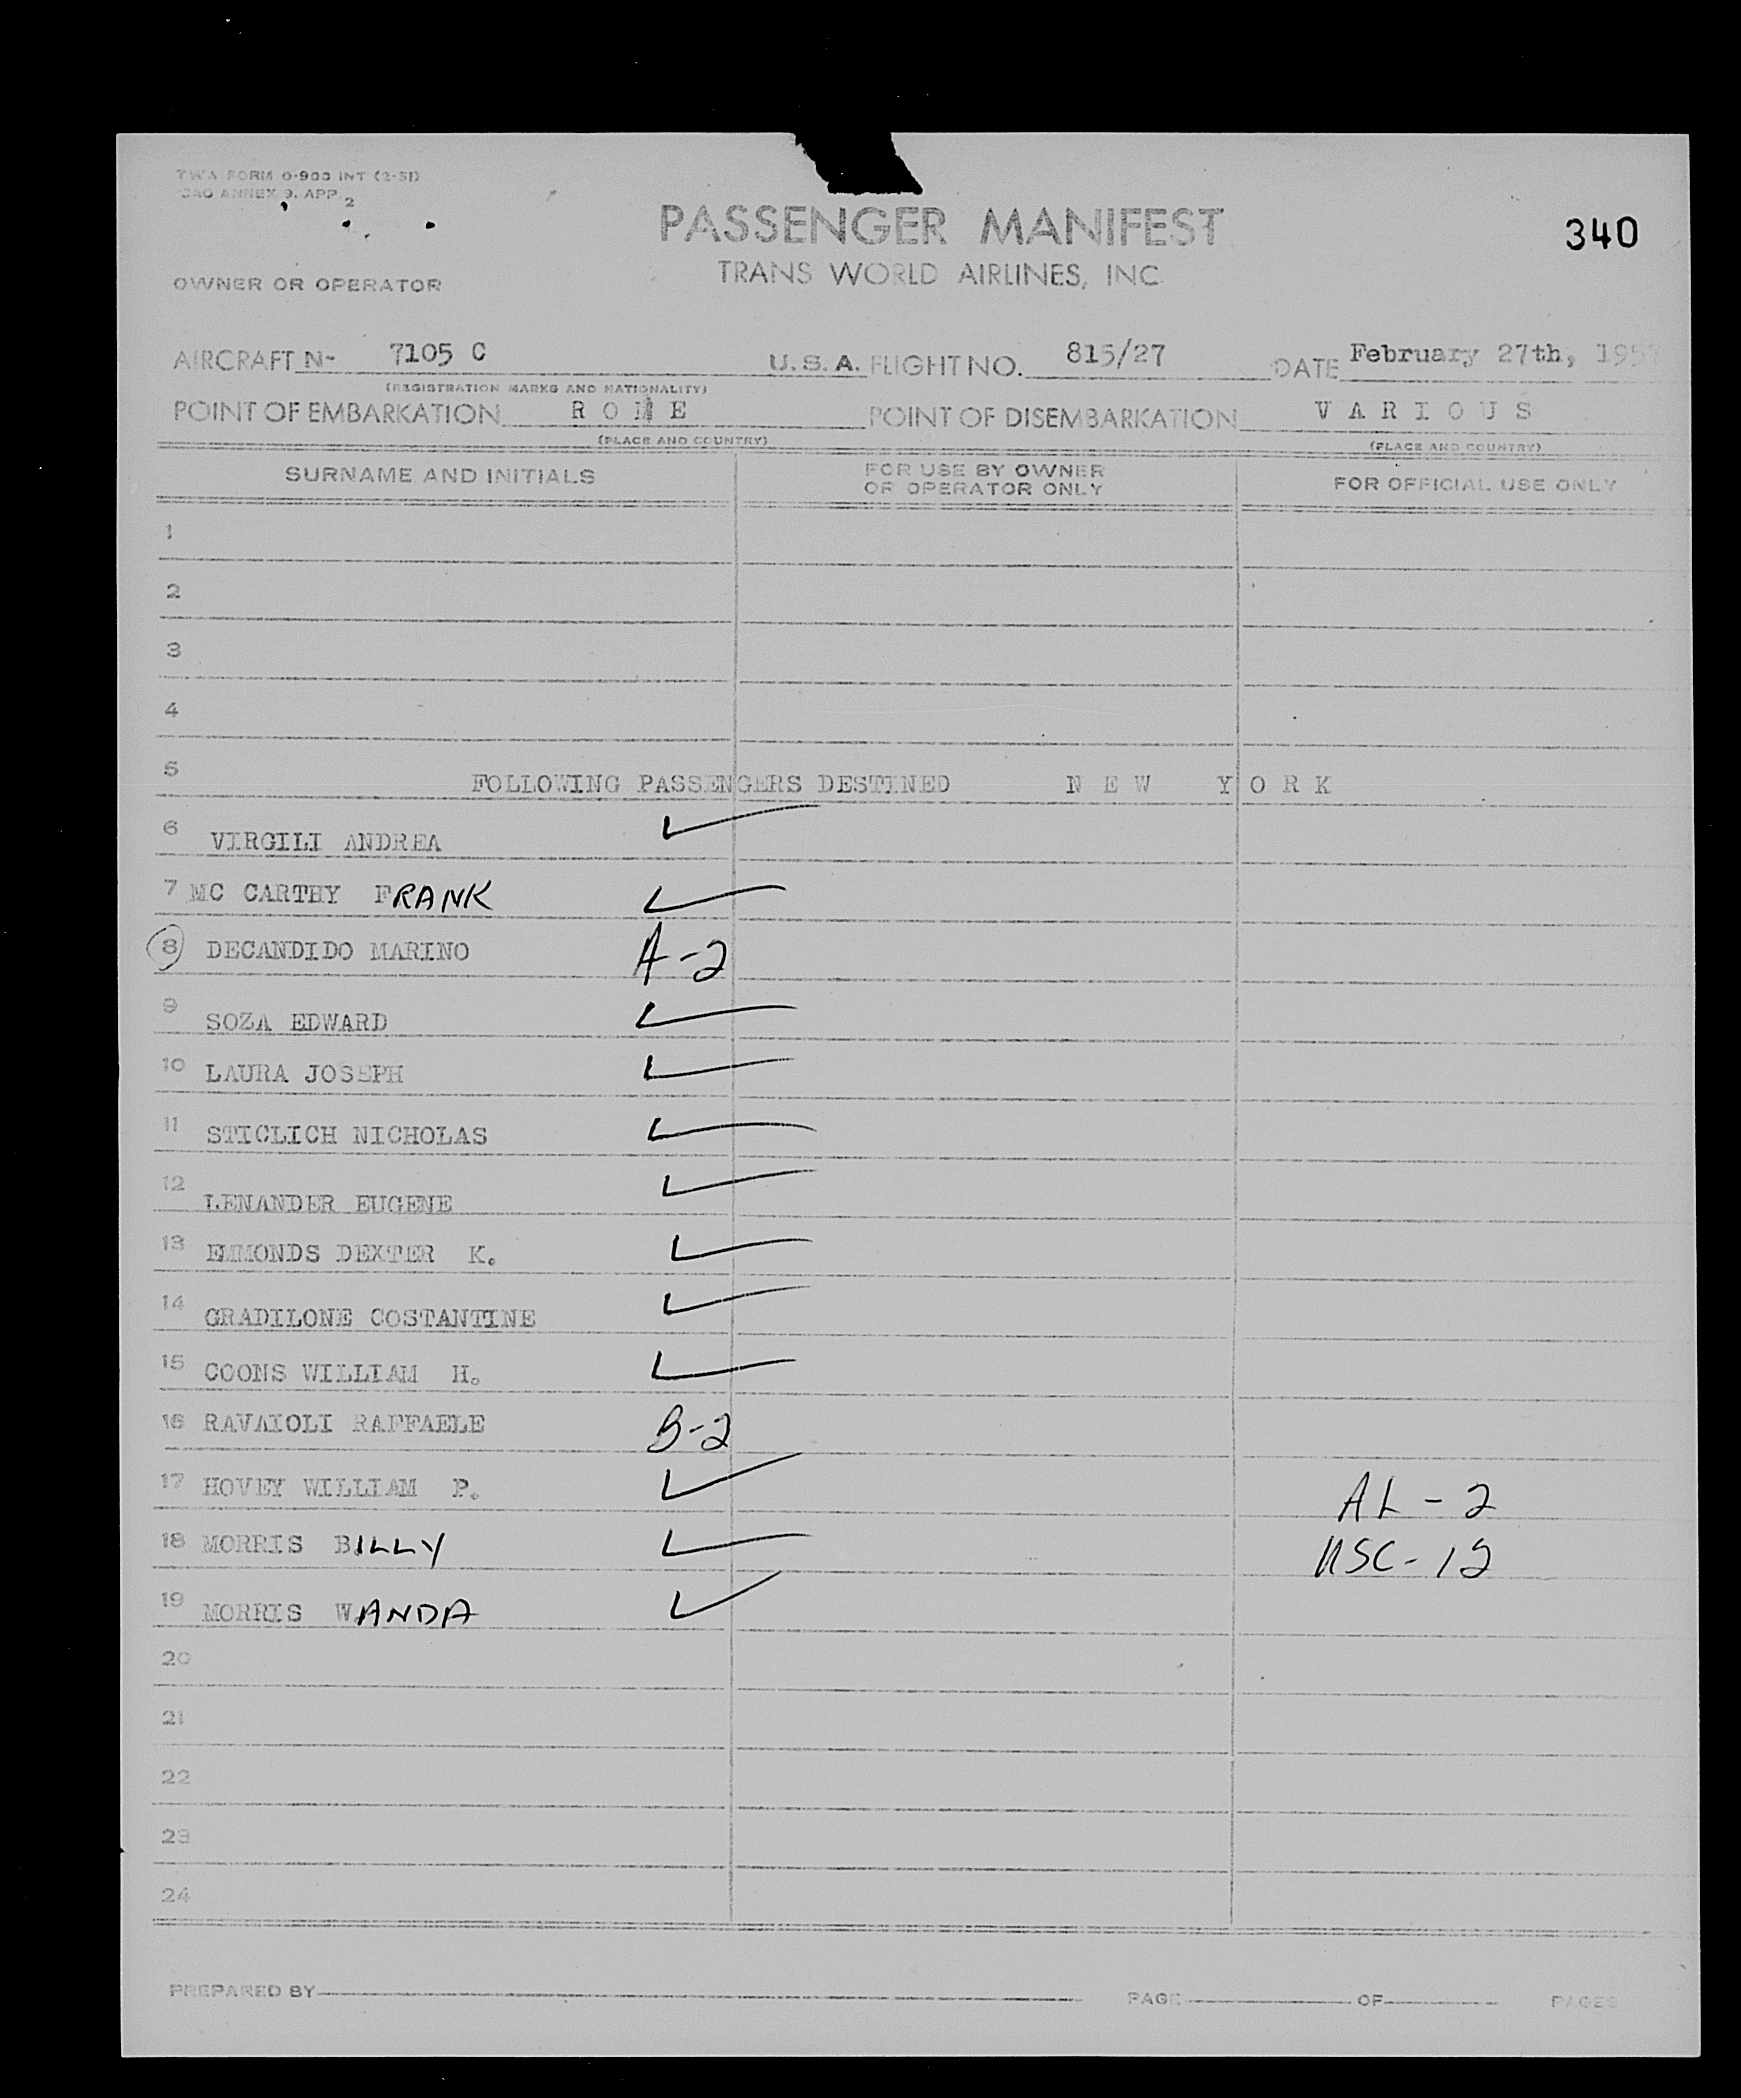 TWA FORM O-900 INT (2-51)
ICAO ANNEX 9. APP. 2
PASSENGER MANIFEST
340
TRANS WORLD AIRLINES, INC
OWNER OR OPERATOR
AIRCRAFT N- 7105 C U.S.A. FLIGHT NO. 815/27 DATE February 27th,
(REGISTRATION MARKS AND NATIONALITY)
POINT OF EMBARKATION R O M E POINT OF DISEMBARKATION V A R I O U S
(PLACE AND COUNTRY) (PLACE AND COUNTRY)
SURNAME AND INITIALS FOR USE BY OWNER OR OPERATOR ONLY FOR OFFICIAL USE ONLY
1
2
3
4
5 FOLLOWING PASSENGERS DESTINED N E W Y O R K
6 VIRGILI ANDREA
7 MC CARTHY FRANK
8 DECANDIDO MARINO A-2
9 SOZA EDWARD
10 LAURA JOSEPH
11 STICLICH NICHOLAS
12 LENANDER EUGENE
13 EMMONDS DEXTER K.
14 GRADILONE COSTANTINE
15 COONS WILLIAM H.
16 RAVAIOLI RAFFAELE B-2
17 HOVEY WILLIAM P. AL-2
18 MORRIS BILLY USC-12
19 MORRIS WANDA
20
21
22
23
24
PREPARED BY PAGE OF PAGES